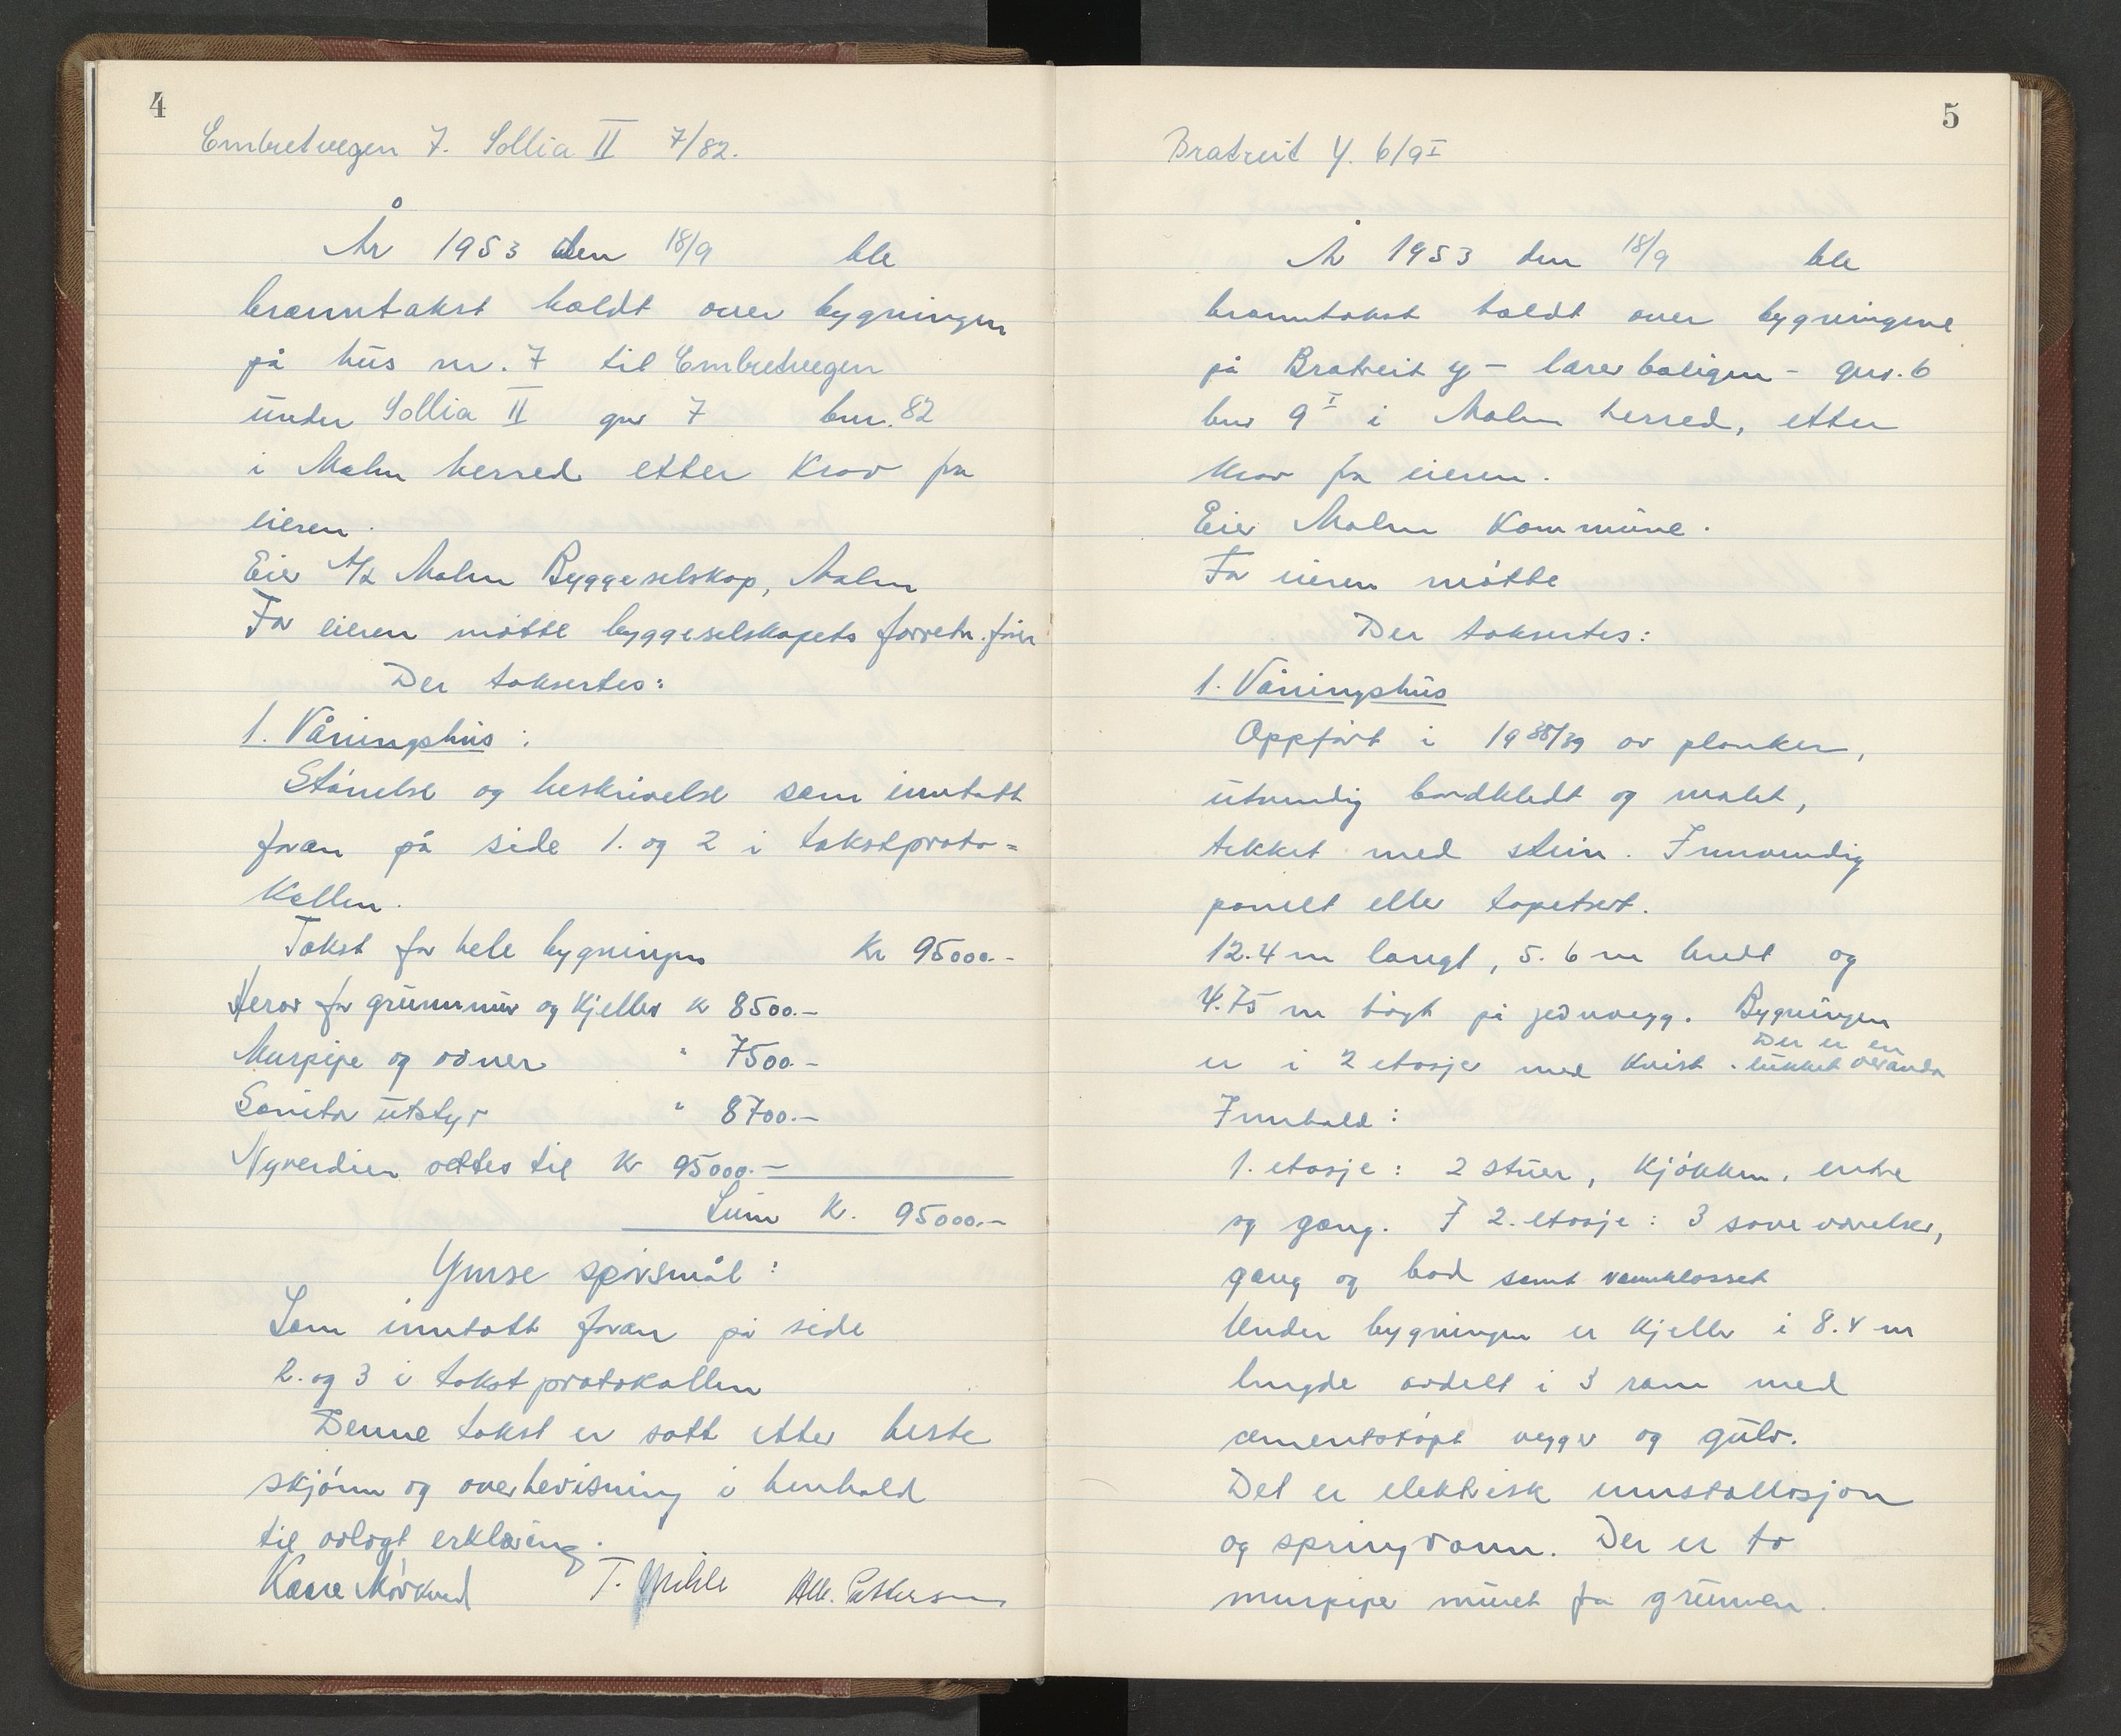 4
Embretvegen 7. Sollia II 7/82.
År 1953 den 18/9 ble
branntakst holdt over bygningen
på hus nr. 7 til Embretvegen
under Sollia II gnr 7 bnr. 82
i Malm herred etter krav fra
eieren.
Eier A/L Malm Byggeselskap, Malm
For eieren møtte byggeselskapets forretn.fører
Der taksertes:
1. Våningshus:
Størrelse og beskrivelse som inntatt
foran på side 1. og 2 i takstproto=
kollen.
Takst for hele bygningen Kr 95000.-
Herav for grunnmur og kjeller kr 8500.-
Murpipe og ovner " 7500.-
Sanitær utstyr " 8700.-
Nyverdien settes til kr 95000.-
Sum kr. 95000.-
Ymse spørsmål:
Som inntatt foran på side
2. og 3 i takstprotokollen
Denne takst er satt etter beste
skjønn og overbevisning i henhold
til avlagt erklæring.
Kaare Mørkved T. Alb. Pettersen
5
Bratreit y. 6/9 I
År 1953 den 18/9 ble
branntakst holdt over bygningene
på Bratreit y - lærerboligen - gnr. 6
bnr 9 I i Malm herred, etter
krav fra eieren.
Eier Malm Kommune.
For eieren møtte
Der taksertes:
1. Våningshus
Oppført i 1938/39 av planker,
utvendig bordkledt og malt,
tekket med stein. Innvendig
panelt eller tapetsert.
12.4 m langt, 5.6 m bredt og
4.75 m høgt på jevnvegg. Bygningen
er i 2 etasjer med kvist. Der er en
lukket veranda
Innhold:
1. etasje: 2 stuer, kjøkken, entre
og gang. I 2. etasje: 3 soveværelser,
gang og bod samt vannklosset
Under bygningen er kjeller i 8.4 m
lengde avdelt i 3 rom med
cementstøpt vegger og gulv.
Det er elektrisk innstallasjon
og springvann. Der er to
murpiper muret fra grunnen.